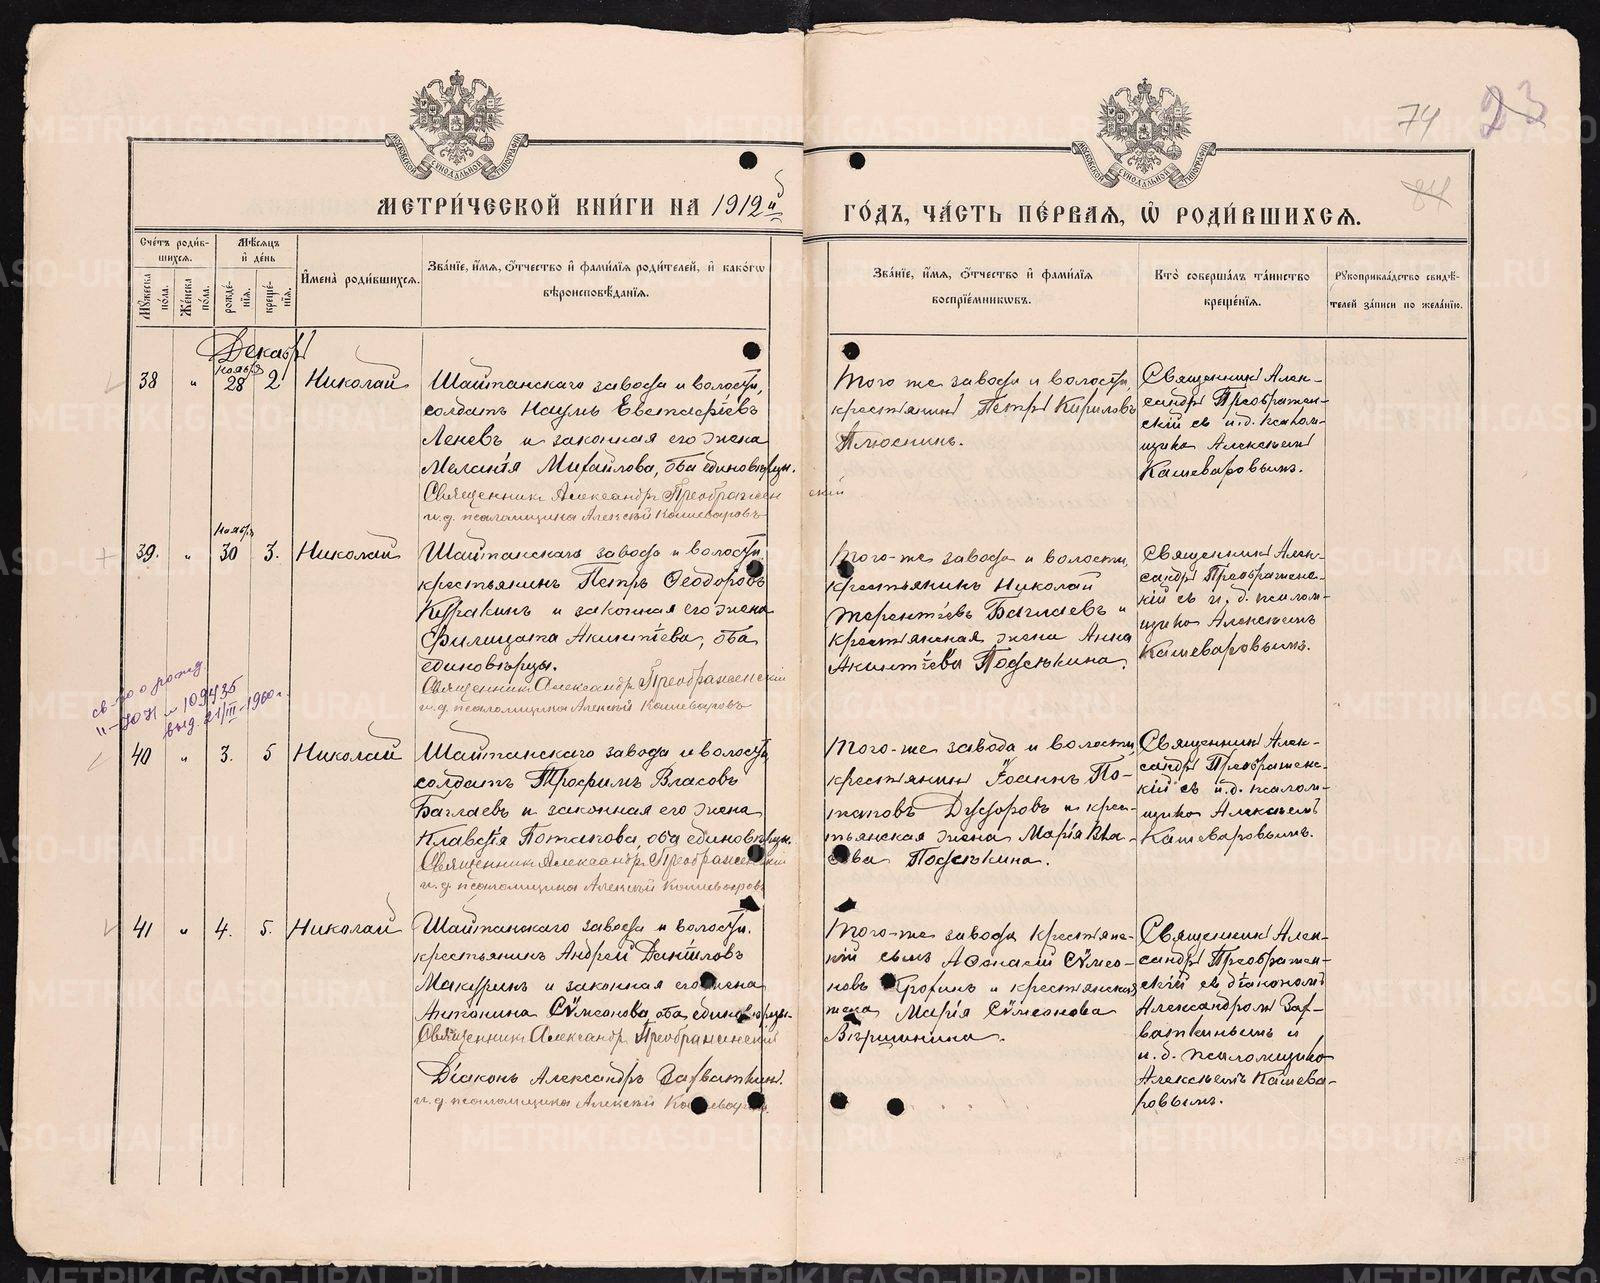 74
23
84
МЕТРИ́ЧЕСКОЙ КНИ́ГИ НА 1912й
ГО́ДЪ, ЧА́СТЬ ПЕ́РВАЯ, Ѡ҆ РОДИ́ВШИХСѦ.
Сче́тъ роди́в-
шихсѧ.
Мѣ́сѧцъ
и҆ де́нь
Мꙋ́жеска
по́ла.
Же́нска
по́ла.
рожде́-
нїѧ.
креще́-
нїѧ.
И҆мена̀ роди́вшихсѧ.
Зва́нїе, и҆́мѧ, ѻ҆́тчество и҆ фами́лїѧ роди́телей, и҆ како́гѡ
вѣроисповѣ́данїѧ.
Зва́нїе, и҆́мѧ, ѻ҆́тчество и҆ фами́лїѧ
воспрїе́мникѡвъ.
Кто̀ соверша́лъ та́инство
креще́нїѧ.
Рꙋкоприкла́дство свидѣ́-
телей за́писи по жела́нїю.
Декабрь
38 " ноябрь 28 2 Николай
Шайтанскаго завода и волости,
солдатъ Наумъ Евстафіевъ
Леневъ и законная его жена
Меланія Михайлова, оба единовѣрцы.
Священникъ Александръ Преображенскій
и.д. псаломщика Алексѣй Кошеваровъ
Того же завода и волости,
крестьянинъ Петръ Кириловъ
Плюснинъ.
Священникъ Алек-
сандръ Преображен-
скій съ и.д. псалом-
щика Алексѣемъ
Кашеваровымъ.
39. " ноябрь 30 3. Николай
Шайтанскаго завода и волости
крестьянинъ Петръ Ѳеодоровъ
Куракинъ и законная его жена
Филицата Акинтіева, оба
единовѣрцы.
Священникъ Александръ Преображенскій
и.д. псаломщика Алексѣй Кошеваровъ
Того-же завода и волости,
крестьянинъ Николай
Терентіевъ Баглаевъ и
крестьянская жена Анна
Акинтіева Подсѣкина.
Священникъ Алек-
сандръ Преображенс-
кій съ и. д. псалом-
щика Алексѣемъ
Кашеваровымъ.
св-во о рожд
"-ЮН № 109435
выд. 21/III-1960г
40 " 3. 5 Николай
Шайтанскаго завода и волости
солдатъ Трофимъ Власовъ
Баглаевъ и законная его жена
Клавдія Потапова, оба единовѣрцы.
Священникъ Александръ Преображенскій
и.д. псаломщика Алексѣй Кошеваровъ
Того-же завода и волости,
крестьянинъ Іоаннъ По-
таповъ Дудоровъ и крес-
тьянская жена Марія Вла-
сова Подсѣкина.
Священникъ Алек-
сандръ Преображенс-
кій съ и.д. псалом-
щика Алексѣемъ
Кашеваровымъ.
41 " 4. 5. Николай
Шайтанскаго завода и волости.
крестьянинъ Андрей Даніиловъ
Макуринъ и законная его жена
Антонина Сѵмеонова, оба единовѣрцы.
Священникъ Александръ Преображенскій
Діаконъ Александръ Зарваткинъ.
и.д псаломщика Алексѣй Кошеваровъ
Того-же завода, крестьянс-
кій сынъ Аѳанасій Сѵмео-
новъ и крестьянская
жена Марія Сѵмеонова
Вершинина.
Священникъ Алек-
сандръ Преображен-
скій съ діакономъ
Александромъ Зар-
ваткинымъ и
и.д. псаломщика
Алексѣемъ Кашева-
ровымъ.
METRIKI.GASO-URAL.RU